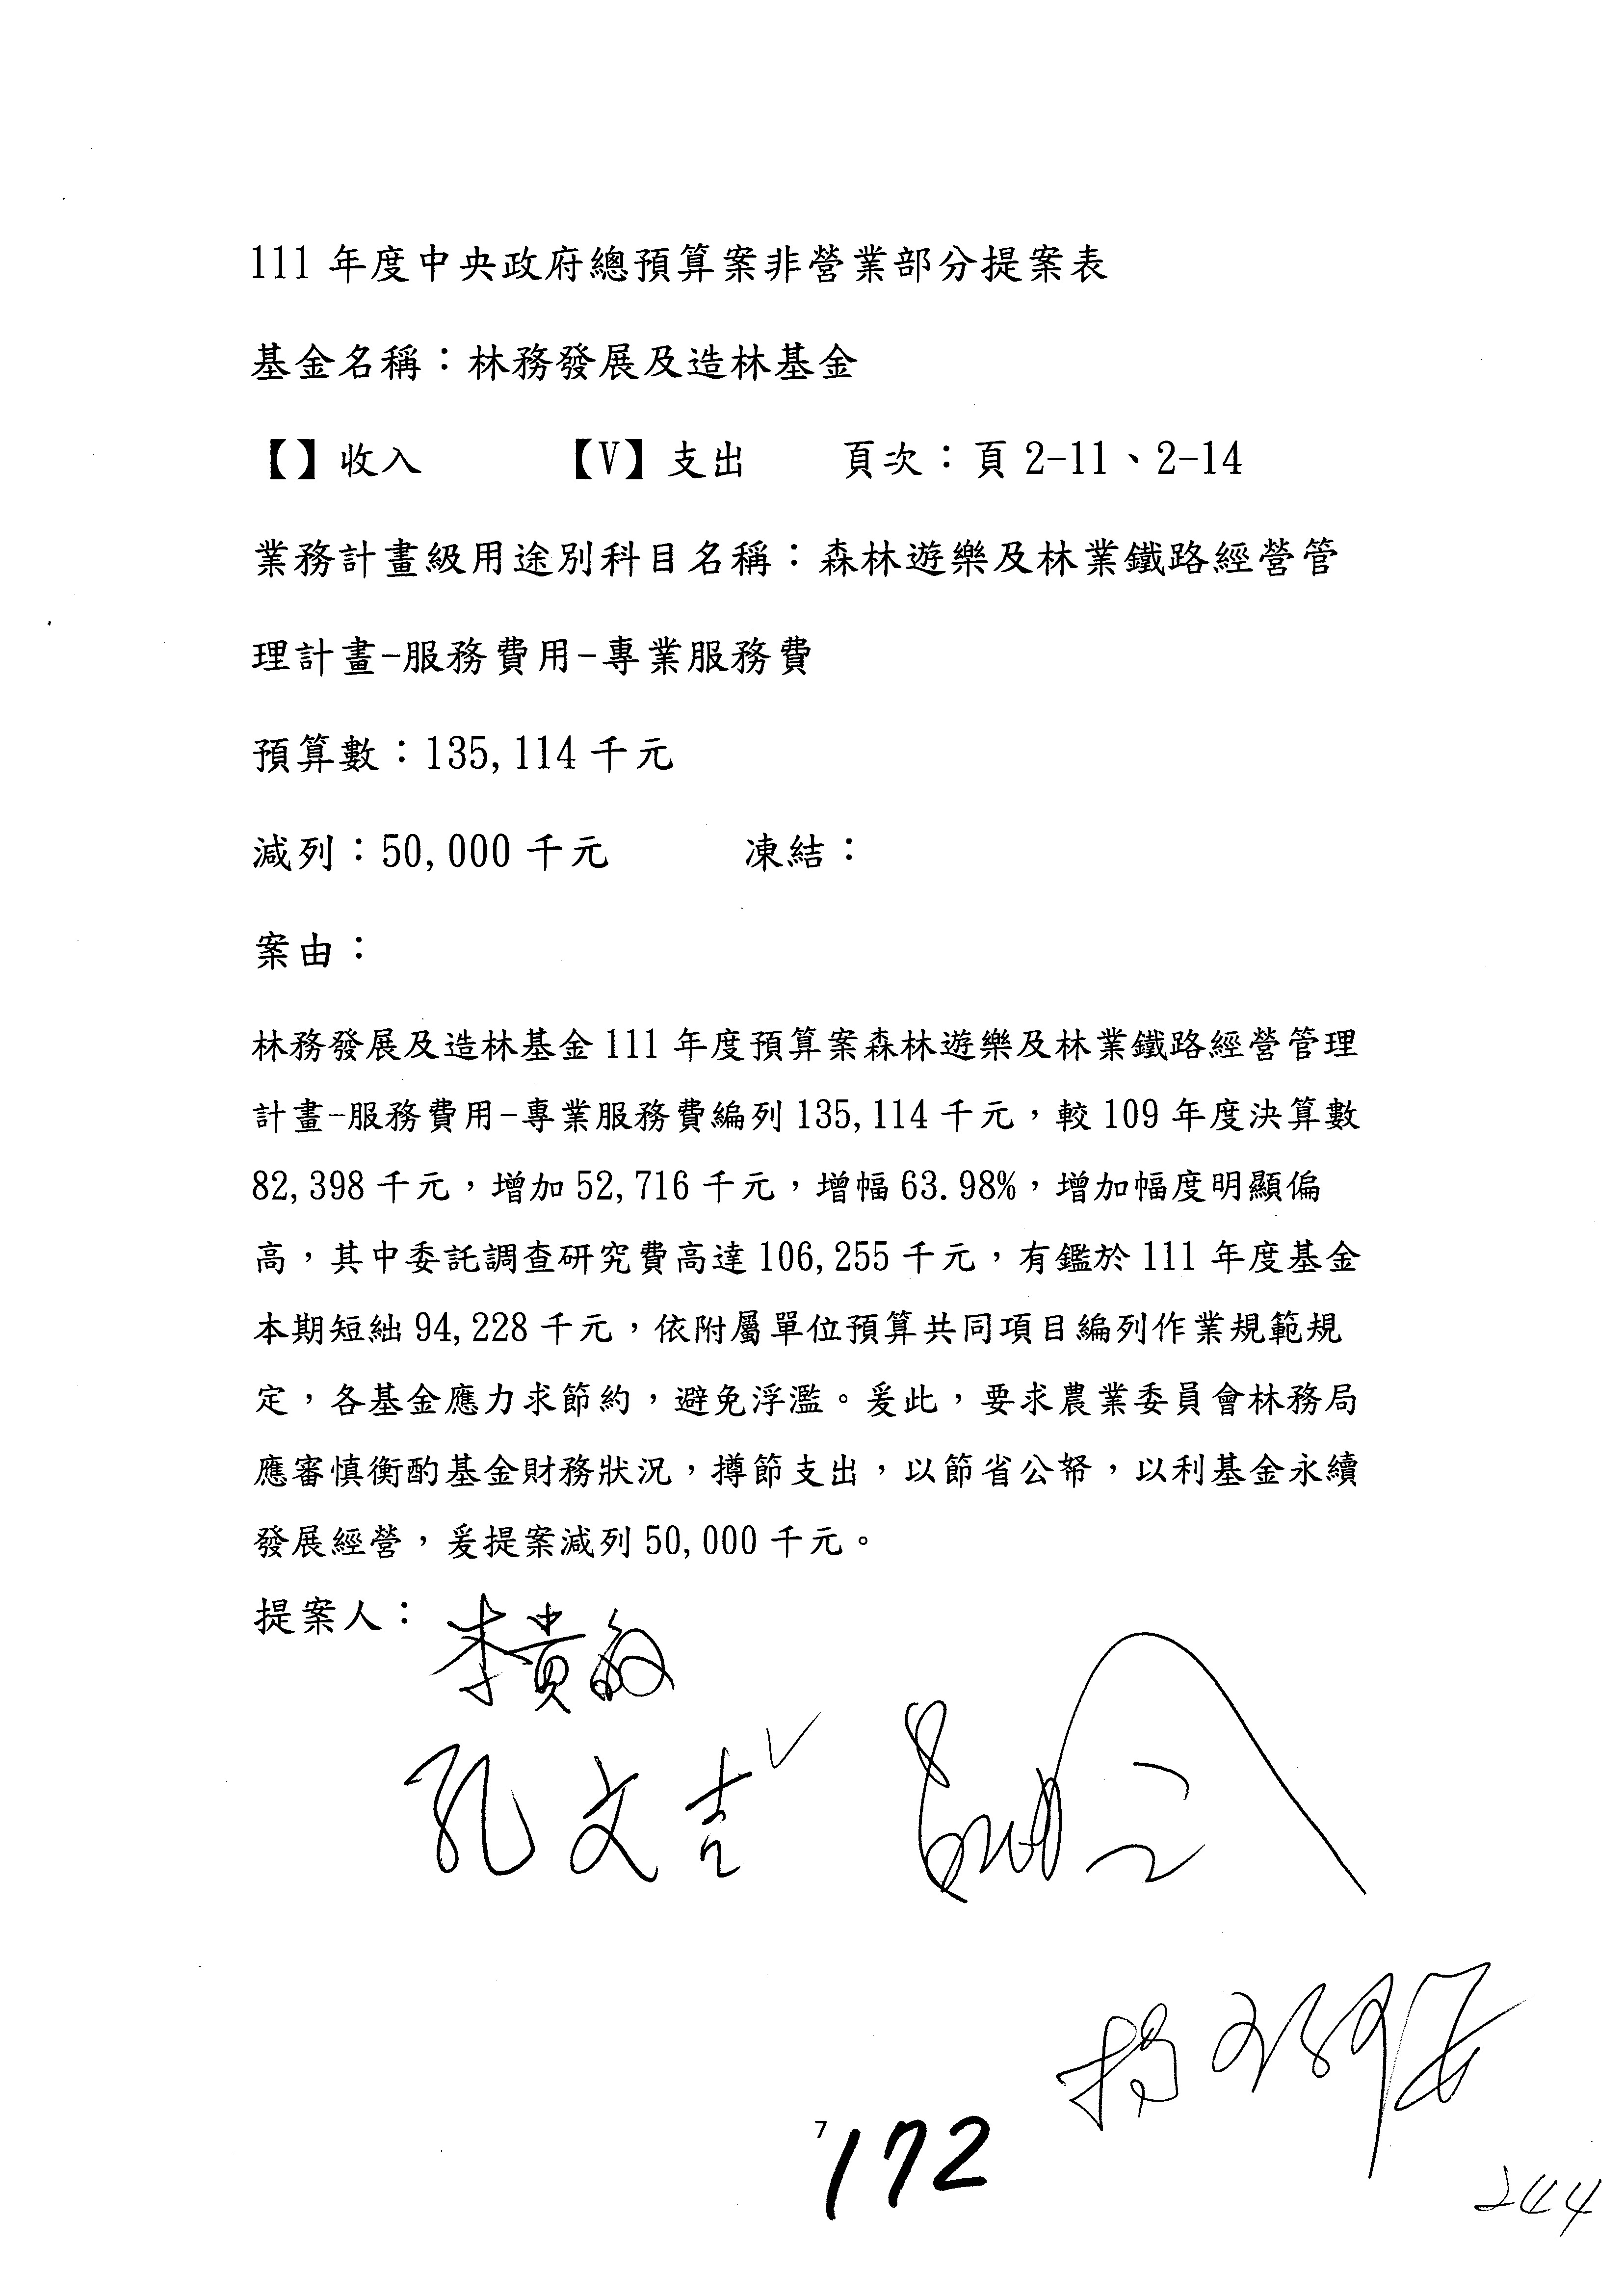 111 年度中央政府總預算案非營業部分提案表
基金名稱：林務發展及造林基金
【】收入　【V】支出　頁次：頁 2-11、2-14
業務計畫級用途別科目名稱：森林遊樂及林業鐵路經營管
理計畫-服務費用-專業服務費
預算數：135,114 千元
減列：50,000 千元　凍結：
案由：
林務發展及造林基金 111 年度預算案森林遊樂及林業鐵路經營管理
計畫-服務費用-專業服務費編列 135,114 千元，較 109 年度決算數
82,398 千元，增加 52,716 千元，增幅 63.98%，增加幅度明顯偏
高，其中委託調查研究費高達 106,255 千元，有鑑於 111 年度基金
本期短絀 94,228 千元，依附屬單位預算共同項目編列作業規範規
定，各基金應力求節約，避免浮濫。爰此，要求農業委員會林務局
應審慎衡酌基金財務狀況，撙節支出，以節省公帑，以利基金永續
發展經營，爰提案減列 50,000 千元。
提案人：李貴敏
孔文吉
7
172
244